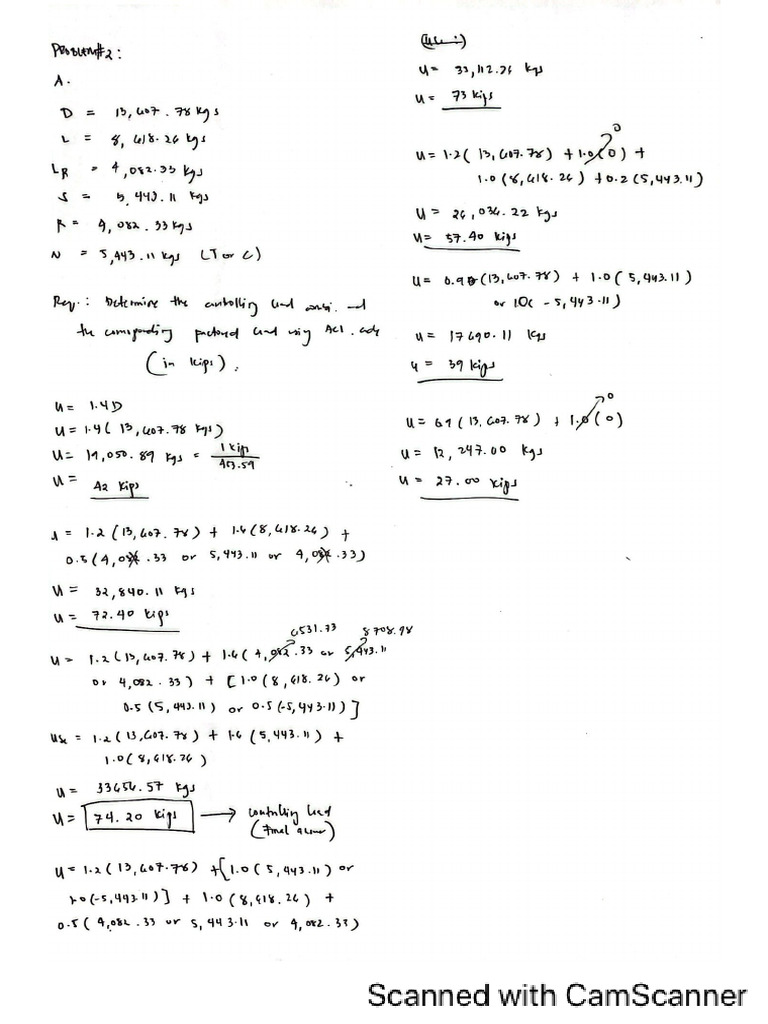 PROBLEM#2:
A.
D = 13,607.78 kgs
L = 8,618.26 kgs
LR = 4,082.33 kgs
S = 5,443.11 kgs
R = 4,082.33 kgs
N = 5,443.11 kgs (T or C)
Req.: Determine the controlling load and
the corresponding factored load using ACI code
(in kips).
U = 1.4D
U = 1.4(13,607.78 kgs)
U = 19,050.89 kgs = 1 kip / 453.59
U = 42 kips
U = 1.2(13,607.78) + 1.6(8,618.26) +
0.5(4,082.33 or 5,443.11 or 4,082.33)
U = 32,840.11 kgs
U = 72.40 kips
6531.73 8708.98
U = 1.2(13,607.78) + 1.6(4,082.33 or 5,443.11
or 4,082.33) + [1.0(8,618.26) or
0.5(5,443.11) or 0.5(-5,443.11)]
Use = 1.2(13,607.78) + 1.6(5,443.11) +
1.0(8,618.26)
U = 33656.57 kgs
U = 74.20 kips → controlling load
(Final answer)
U = 1.2(13,607.78) + [1.0(5,443.11) or
1.0(-5,443.11)] + 1.0(8,618.26) +
0.5(4,082.33 or 5,443.11 or 4,082.33)
U = 33,112.26 kgs
U = 73 kips
0
U = 1.2(13,607.78) + 1.0(0) +
1.0(8,618.26) + 0.2(5,443.11)
U = 26,036.22 kgs
U = 57.40 kips
U = 0.9(13,607.78) + 1.0(5,443.11)
or 10(-5,443.11)
U = 17690.11 kgs
U = 39 kips
0
U = 0.9(13,607.78) + 1.0(0)
U = 12,247.00 kgs
U = 27.00 kips
Scanned with CamScanner